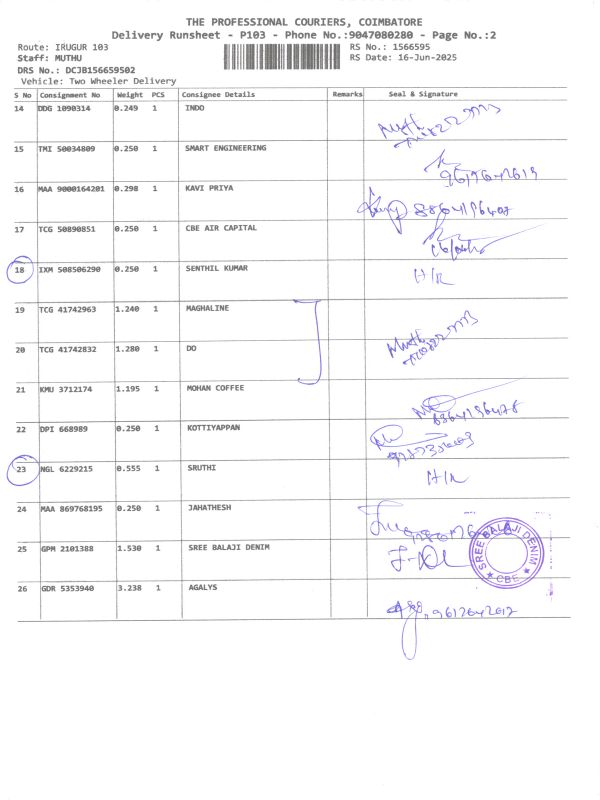 THE PROFESSIONAL COURIERS, COIMBATORE
Delivery Runsheet - P103 - Phone No.:9047080280 - Page No.:2
Route: IRUGUR 103 RS No.: 1566595
Staff: MUTHU RS Date: 16-Jun-2025
DRS No.: DCJB156659502
Vehicle: Two Wheeler Delivery
S No Consignment No Weight PCS Consignee Details Remarks Seal & Signature
14 DDG 1090314 0.249 1 INDO
15 TMI 50034809 0.250 1 SMART ENGINEERING
16 MAA 9000164201 0.298 1 KAVI PRIYA
17 TCG 50890851 0.250 1 CBE AIR CAPITAL
18 IXM 508506290 0.250 1 SENTHIL KUMAR H/R
19 TCG 41742963 1.240 1 MAGHALINE
20 TCG 41742832 1.280 1 DO
21 KMU 3712174 1.195 1 MOHAN COFFEE
22 DPI 668989 0.250 1 KOTTIYAPPAN
23 NGL 6229215 0.555 1 SRUTHI H/R
24 MAA 869768195 0.250 1 JAHATHESH
25 GPM 2101388 1.530 1 SREE BALAJI DENIM
SREE BALAJI DENIM
CBE
26 GDR 5353940 3.238 1 AGALYS